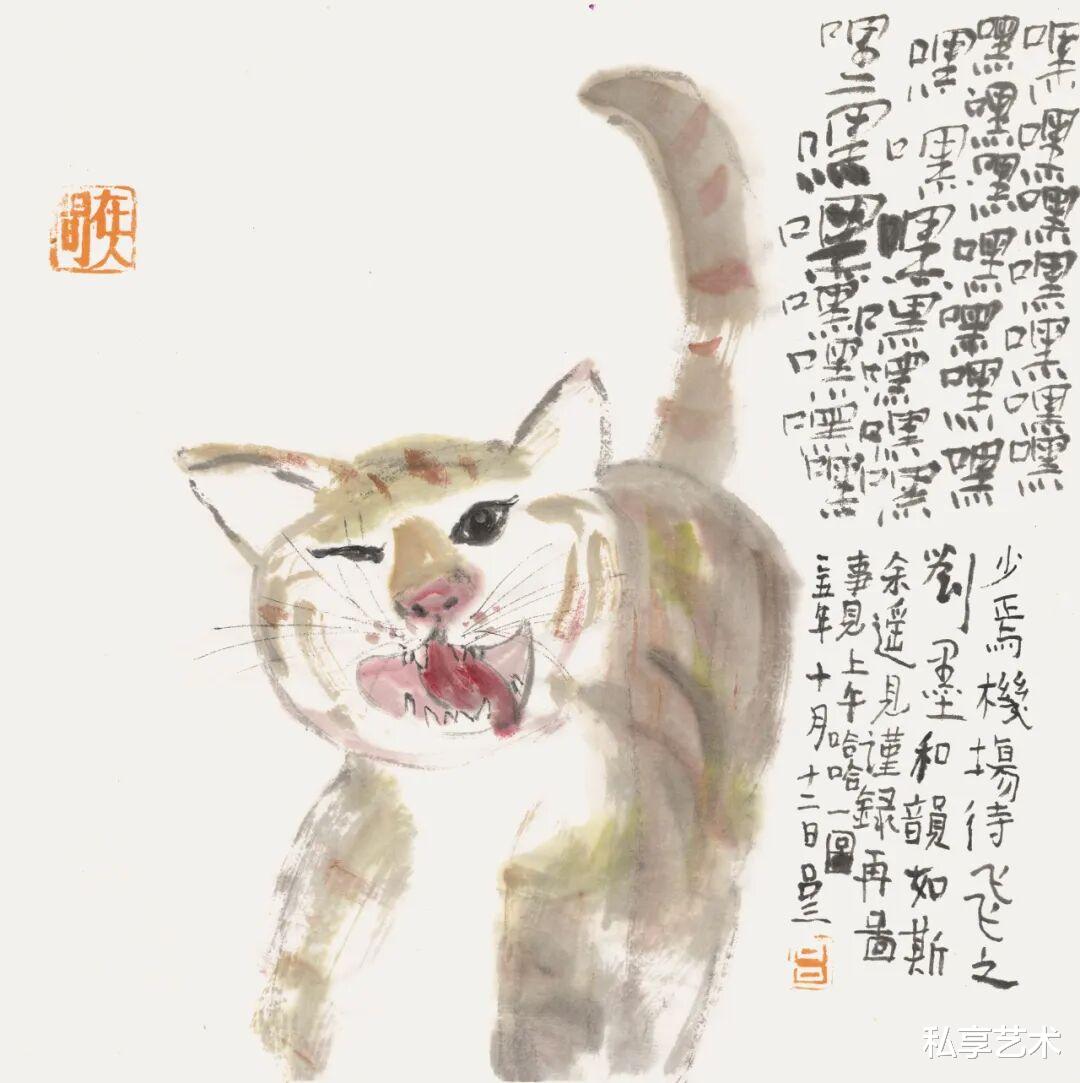 嘿嘿嘿嘿嘿嘿嘿
嘿嘿嘿嘿嘿嘿嘿
嘿嘿嘿嘿嘿嘿嘿
嘿二嘿嘿嘿嘿嘿嘿
少焉機場待飛之
劉墨和韻如斯
余遥見謹録再啚
事見上午哈哈一圖
二五年十月十二日吕三
私享艺术